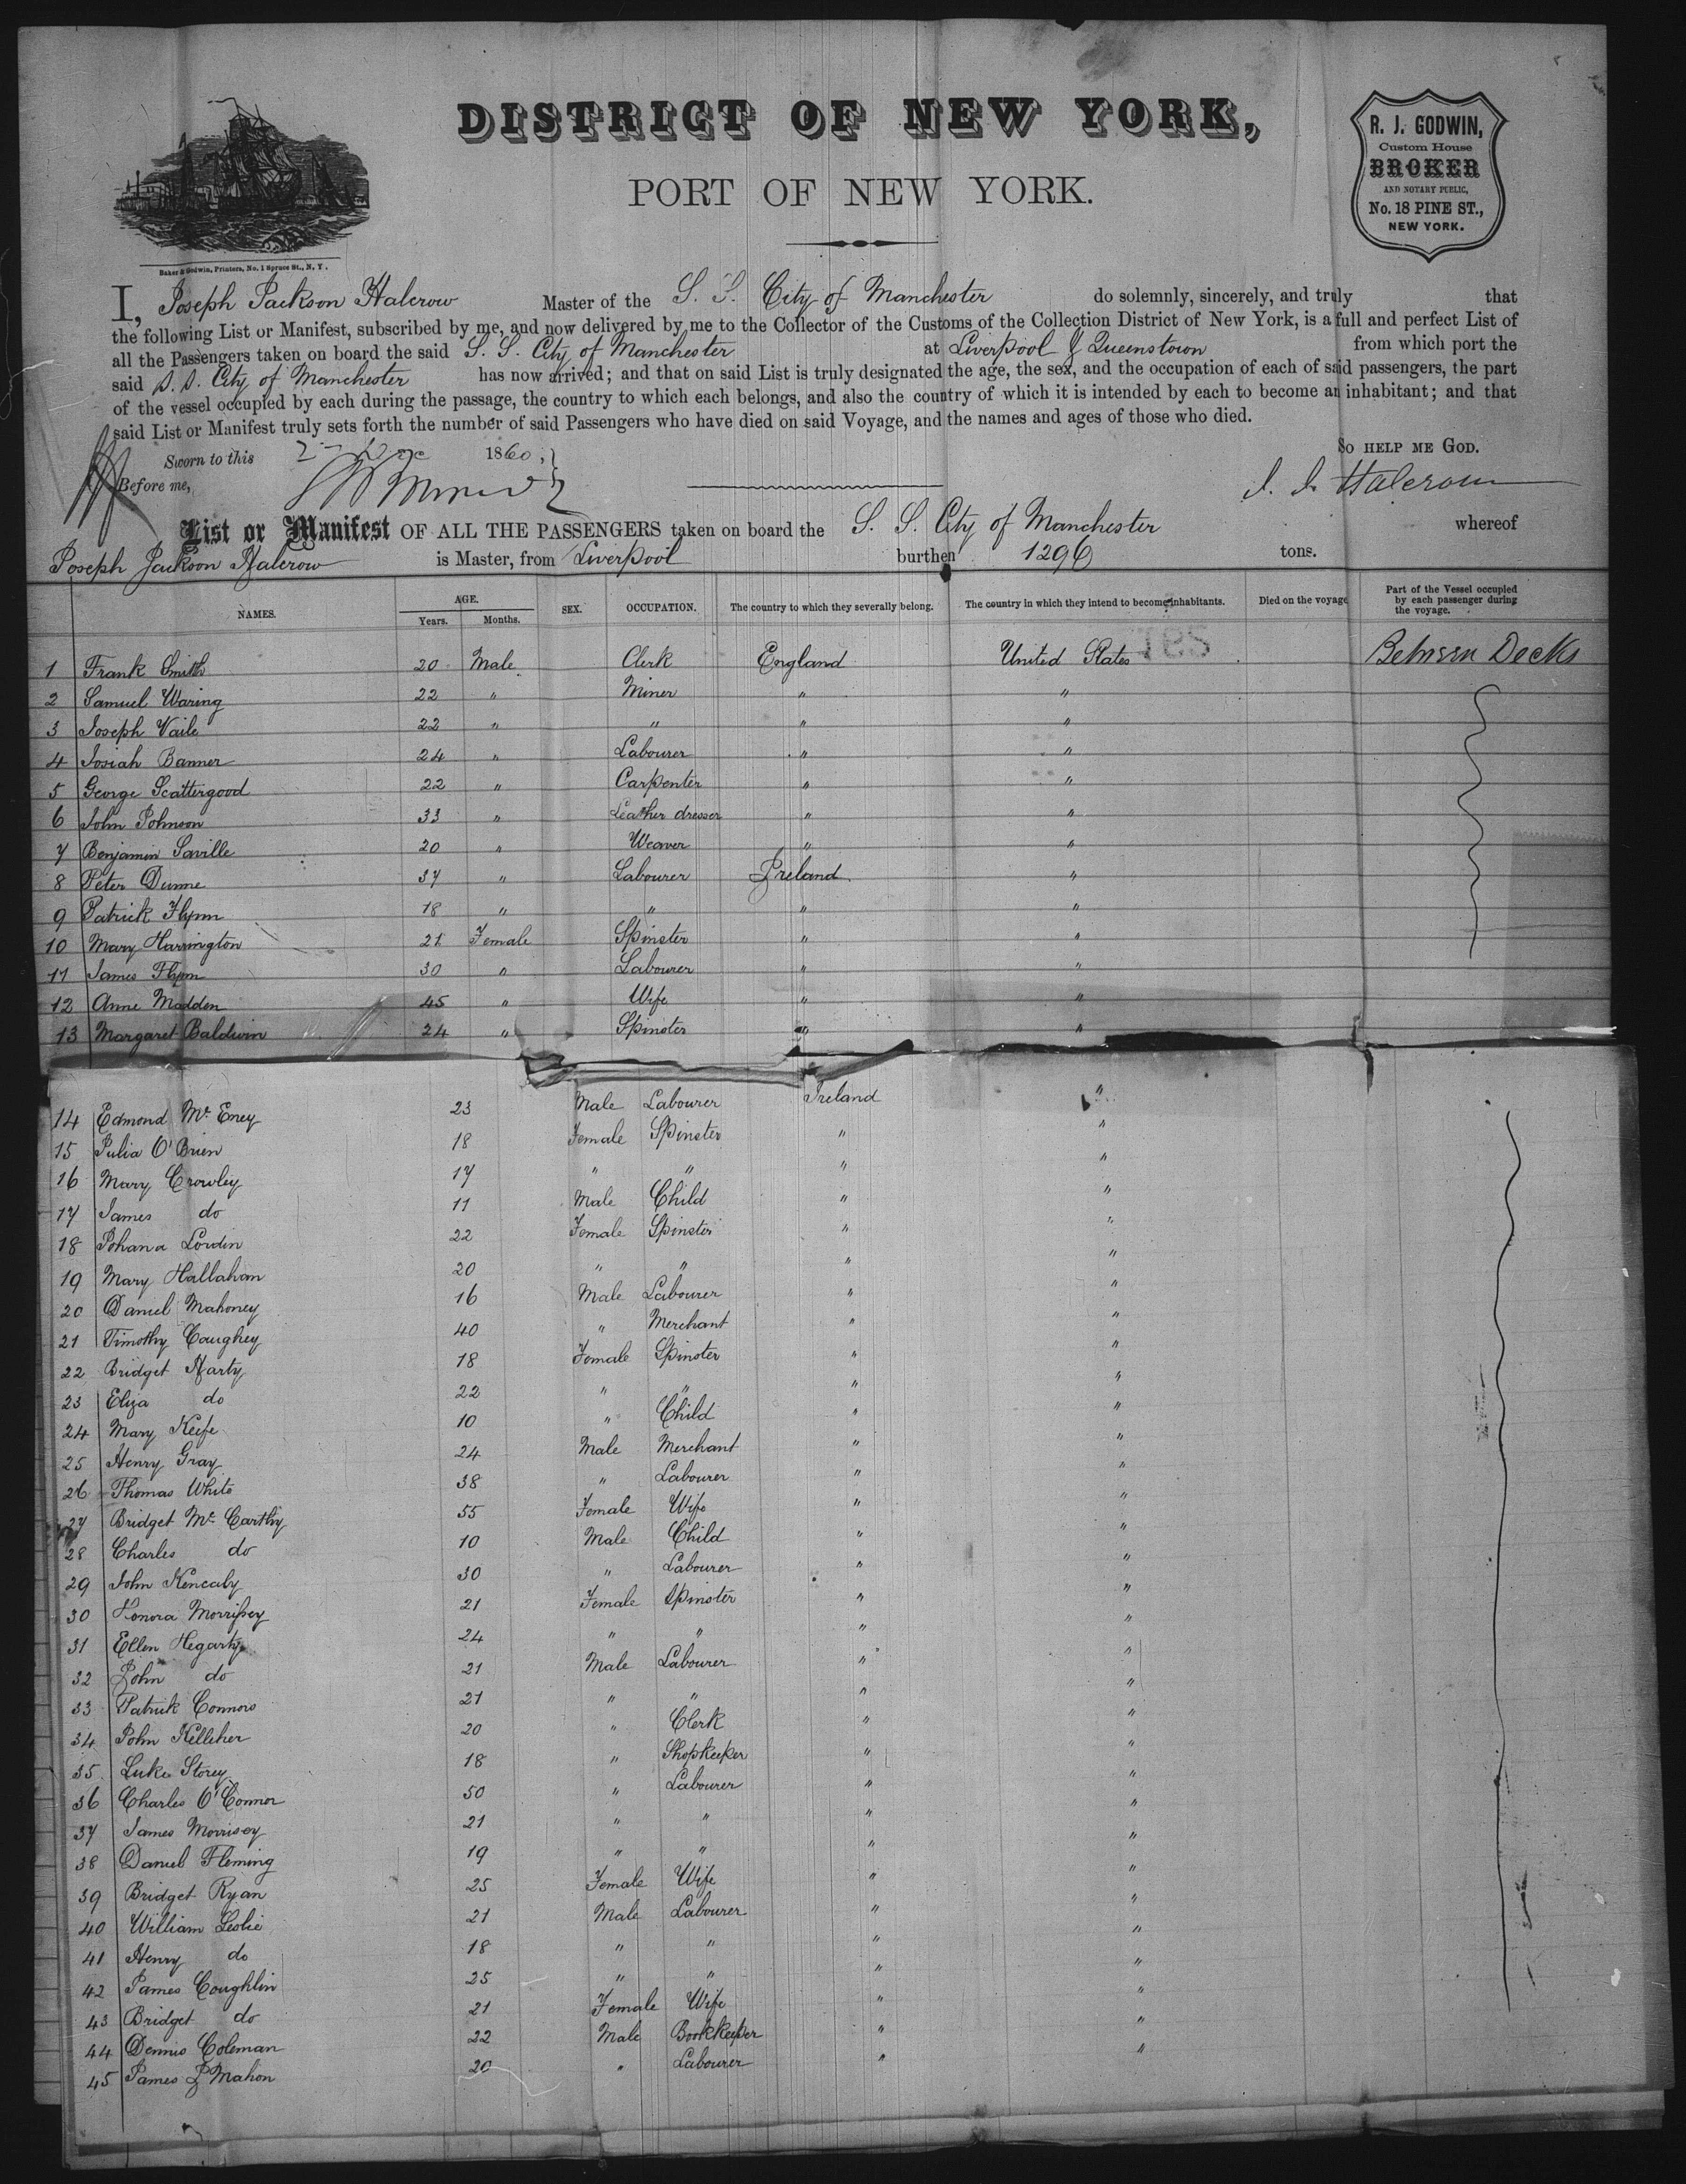 DISTRICT OF NEW YORK,
PORT OF NEW YORK.
R. J. GODWIN,
Custom House
BROKER
AND NOTARY PUBLIC,
No. 18 PINE ST.,
NEW YORK.
Baker & Godwin, Printers, No. 1 Spruce St., N. Y.
I, Joseph Jackson Halcrow Master of the S. S. City of Manchester do solemnly, sincerely, and truly that
the following List or Manifest, subscribed by me, and now delivered by me to the Collector of the Customs of the Collection District of New York, is a full and perfect List of
all the Passengers taken on board the said S. S. City of Manchester at Liverpool & Queenstown from which port the
said S. S. City of Manchester has now arrived; and that on said List is truly designated the age, the sex, and the occupation of each of said passengers, the part
of the vessel occupied by each during the passage, the country to which each belongs, and also the country of which it is intended by each to become an inhabitant; and that
said List or Manifest truly sets forth the number of said Passengers who have died on said Voyage, and the names and ages of those who died.
Sworn to this 1860, So HELP ME GOD.
Before me, J. J. Halcrow
List or Manifest OF ALL THE PASSENGERS taken on board the S. S. City of Manchester whereof
Joseph Jackson Halcrow is Master, from Liverpool burthen 1296 tons.
NAMES. AGE. Years. Months. SEX. OCCUPATION. The country to which they severally belong. The country in which they intend to become inhabitants. Died on the voyage Part of the Vessel occupied by each passenger during the voyage.
1 Frank Smith 20 Male Clerk England United States Between Decks
2 Samuel Waring 22 " Miner " "
3 Joseph Vaile 22 " " " "
4 Josiah Banner 24 " Labourer " "
5 George Scattergood 22 " Carpenter " "
6 John Johnson 33 " Leather dresser " "
7 Benjamin Saville 20 " Weaver " "
8 Peter Dunne 37 " Labourer Ireland "
9 Patrick Flynn 18 " " " "
10 Mary Harrington 21 Female Spinster " "
11 James Flynn 30 " Labourer " "
12 Anne Madden 45 " Wife " "
13 Margaret Baldwin 24 " Spinster " "
14 Edmond Mc Eney 23 Male Labourer Ireland "
15 Julia O'Brien 18 Female Spinster " "
16 Mary Crowley 17 " " " "
17 James do 11 Male Child " "
18 Johana Lordin 22 Female Spinster " "
19 Mary Hallahan 20 " " " "
20 Daniel Mahoney 16 Male Labourer " "
21 Timothy Caughey 40 " Merchant " "
22 Bridget Harty 18 Female Spinster " "
23 Eliza do 22 " " " "
24 Mary Keefe 10 " Child " "
25 Henry Gray 24 Male Merchant " "
26 Thomas White 38 " Labourer " "
27 Bridget Mc Carthy 55 Female Wife " "
28 Charles do 10 Male Child " "
29 John Kencaly 30 " Labourer " "
30 Honora Morrissey 21 Female Spinster " "
31 Ellen Hegarty 24 " " " "
32 John do 21 Male Labourer " "
33 Patrick Connors 21 " " " "
34 John Kelliher 20 " Clerk " "
35 Luke Storey 18 " Shopkeeper " "
36 Charles O'Connor 50 " Labourer " "
37 James Morrisey 21 " " " "
38 Daniel Fleming 19 " " " "
39 Bridget Ryan 25 Female Wife " "
40 William Leslie 21 Male Labourer " "
41 Henry do 18 " " " "
42 James Coughlin 25 " " " "
43 Bridget do 21 Female Wife " "
44 Dennis Coleman 22 Male Bookkeeper " "
45 James Mahon 20 " Labourer " "